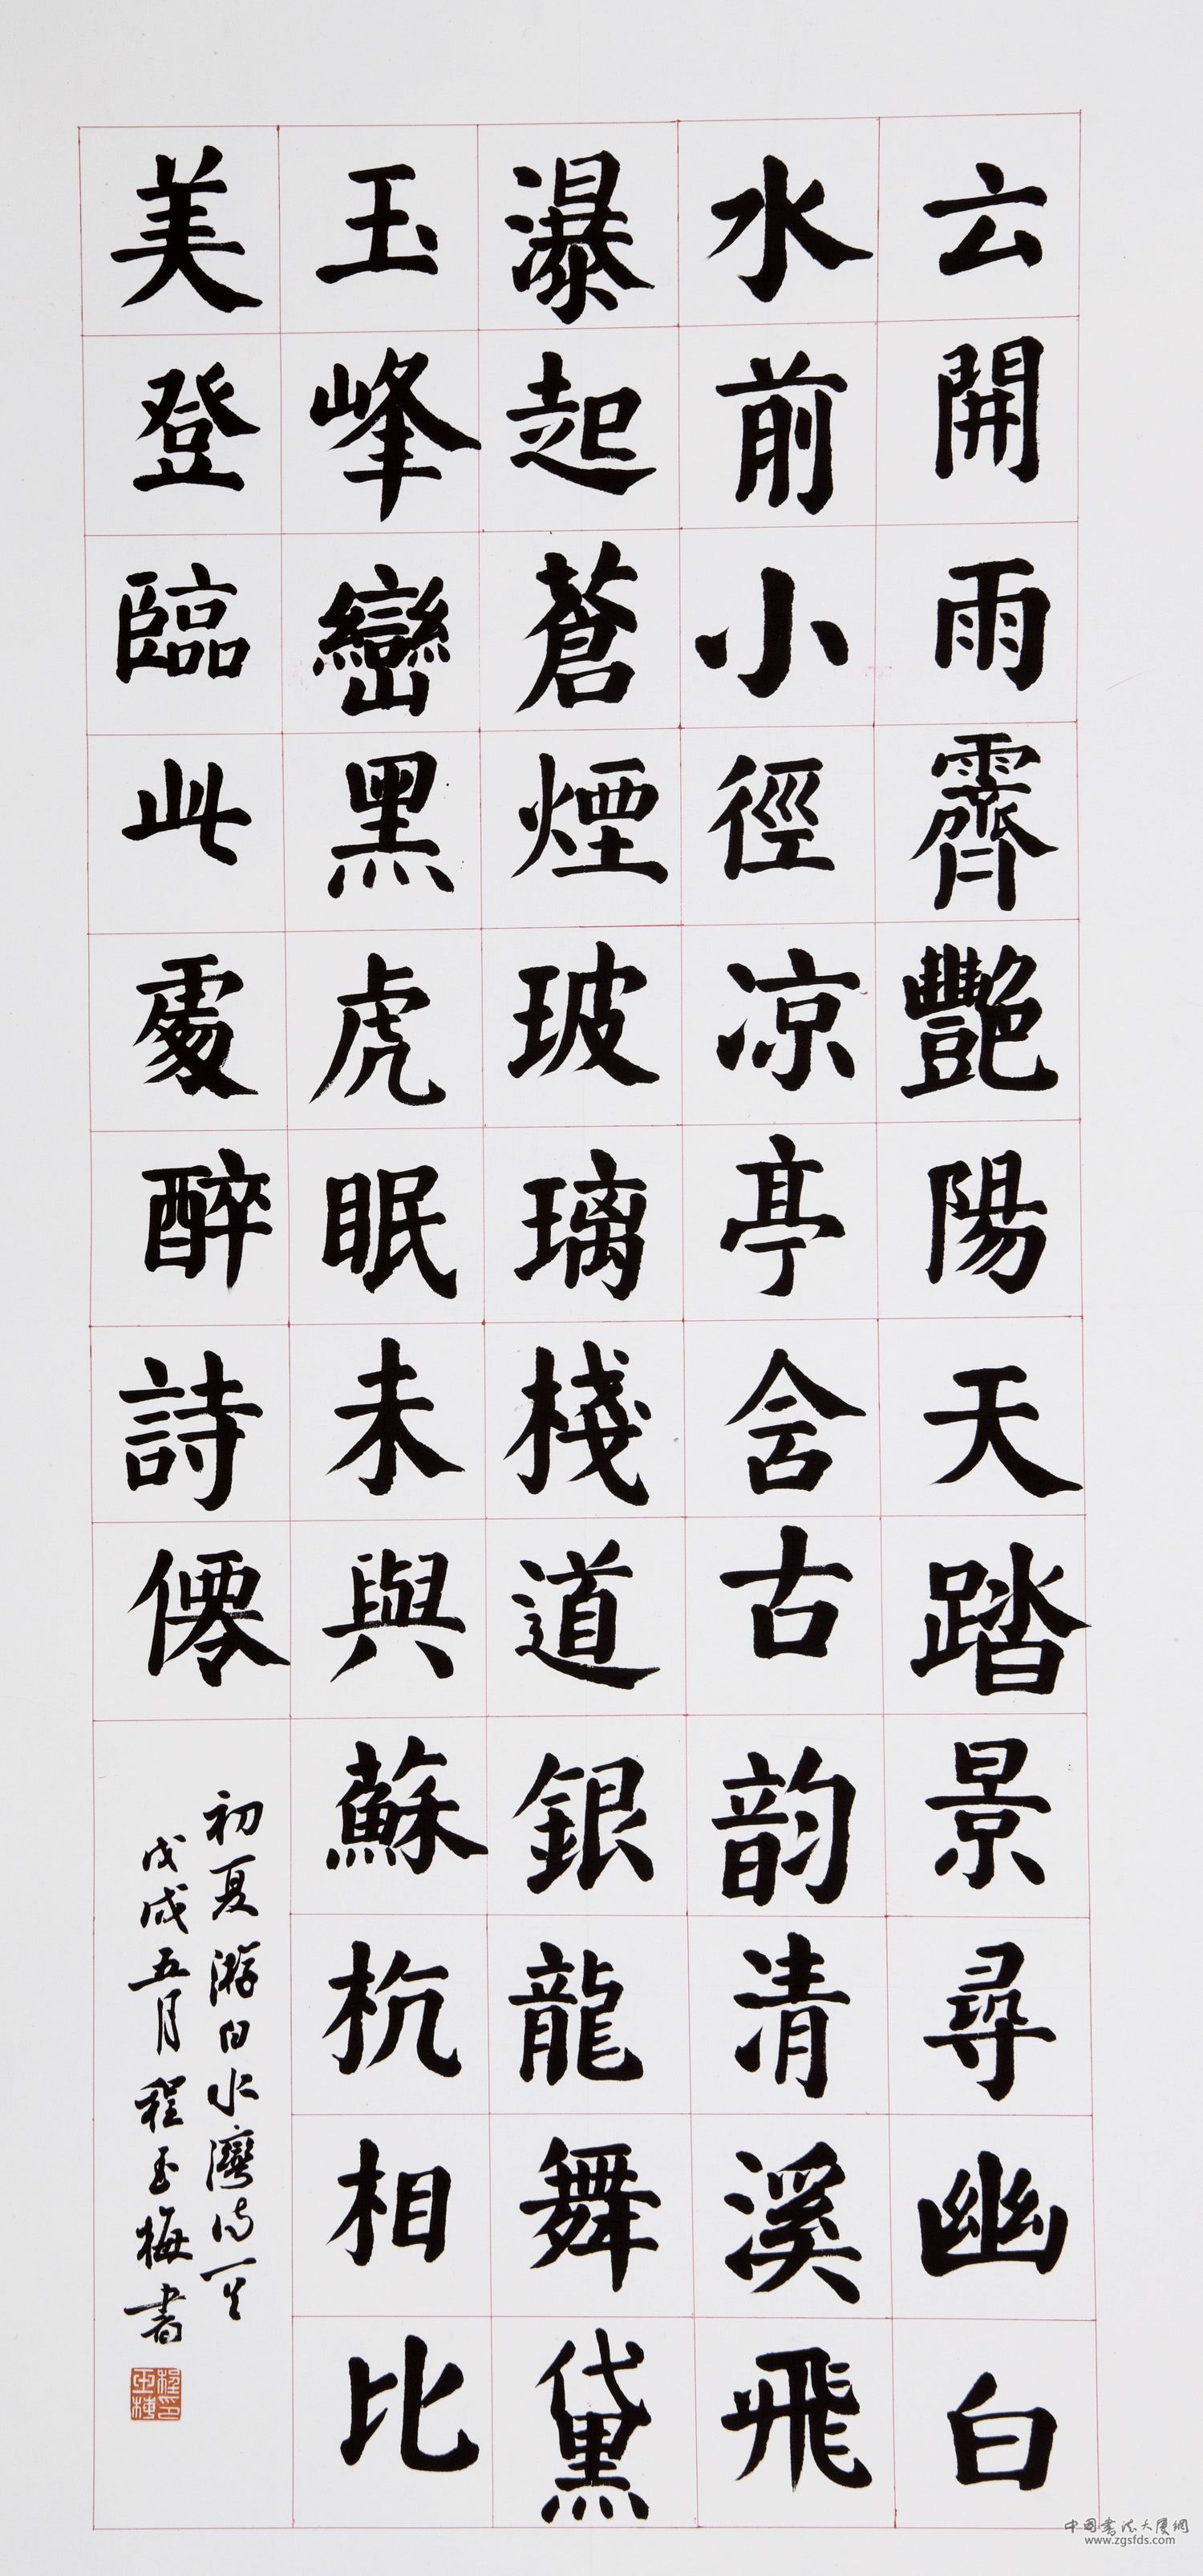 云開雨霽艷陽天踏景尋幽白
水前小徑凉亭舍古韵清溪飛
瀑起蒼煙玻璃棧道銀龍舞黛
玉峰巒黑虎眠未與蘇杭相比
美登臨此處醉詩僊
初夏游白水灣詩一首
戊戌五月程玉梅書
程玉梅印
中国书法大厦網
www.zgsfds.com